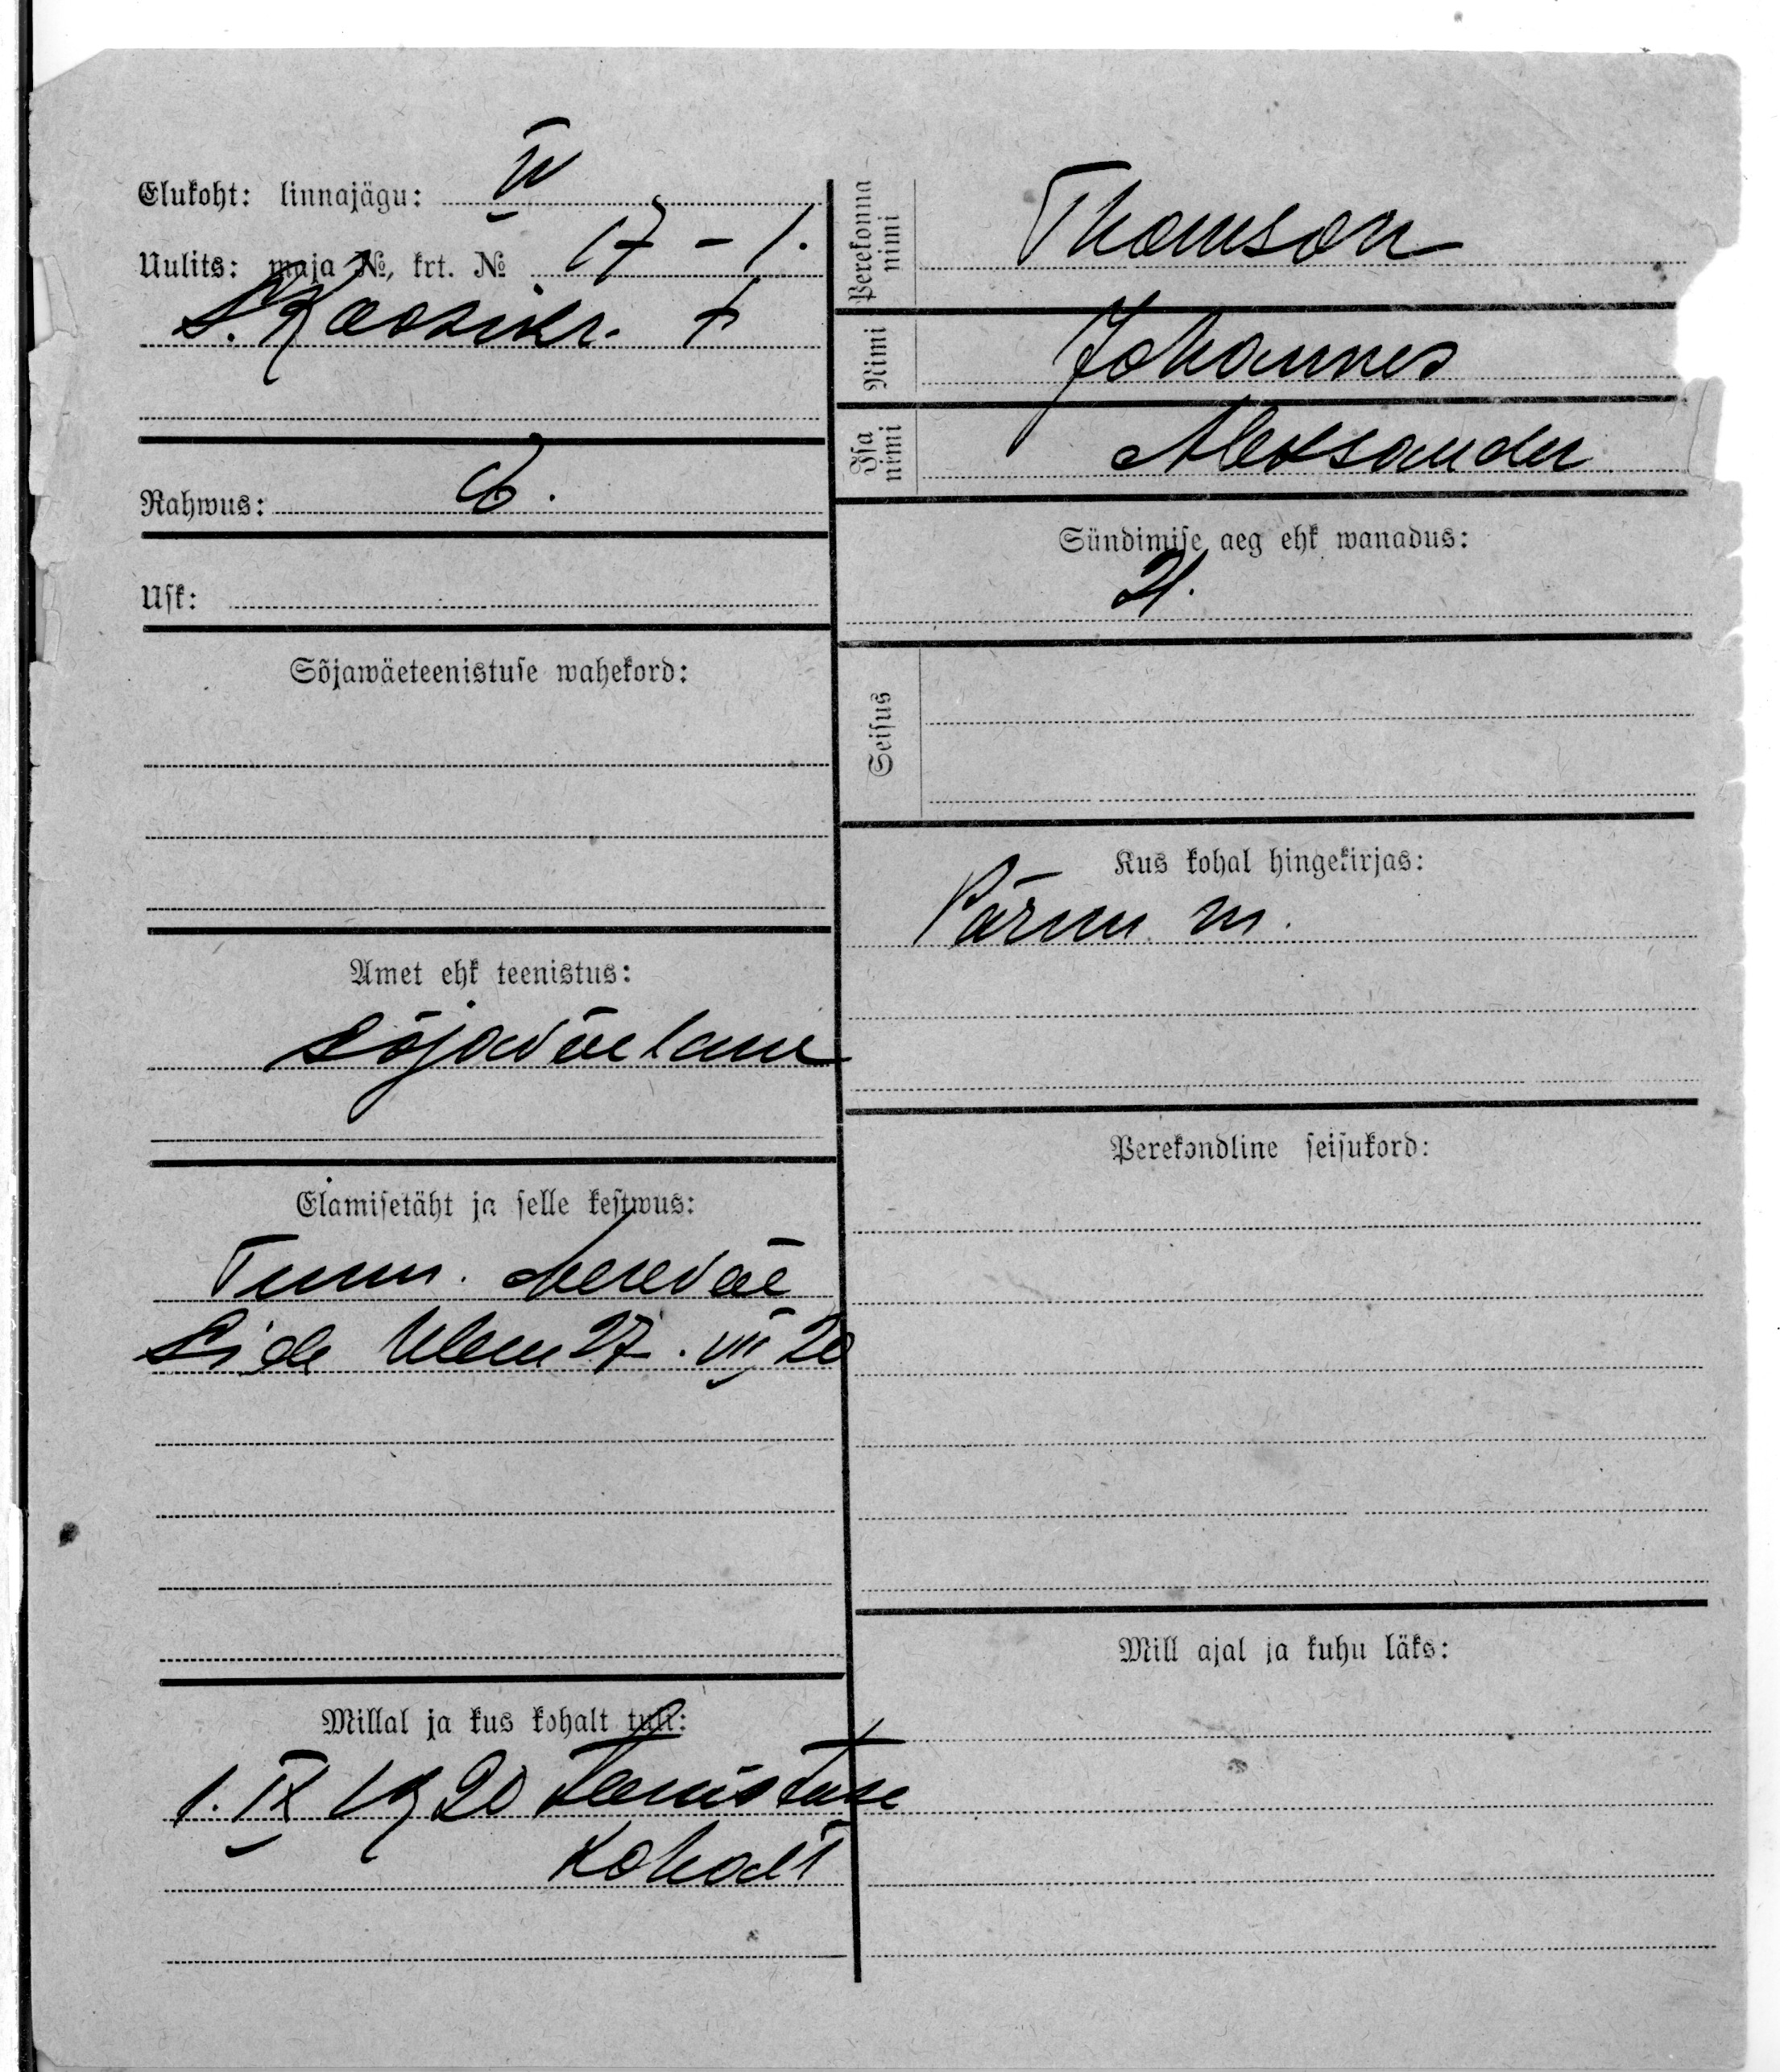 Elukoht: linnajägu: IV
Uulits: maja №, krt. № 17 - 1.
S. Kaasikr. t
Rahwus: E.
Usk:
Sõjawäeteenistuse wahekord:
Amet ehk teenistus:
sõjaväelane
Elamisetäht ja selle kestwus:
Tunn. Mereväe
Side Ülem 27. VII 20
Millal ja kus kohalt tuli:
1. IX 1920 teenistuse
kohalt
Perekonna nimi Thomson
Nimi Johannes
Isa nimi Aleksander
Sündimise aeg ehk wanadus:
21.
Seisus
Kus kohal hingekirjas:
Pärnu m.
Perekondline seisukord:
Mill ajal ja kuhu läks: